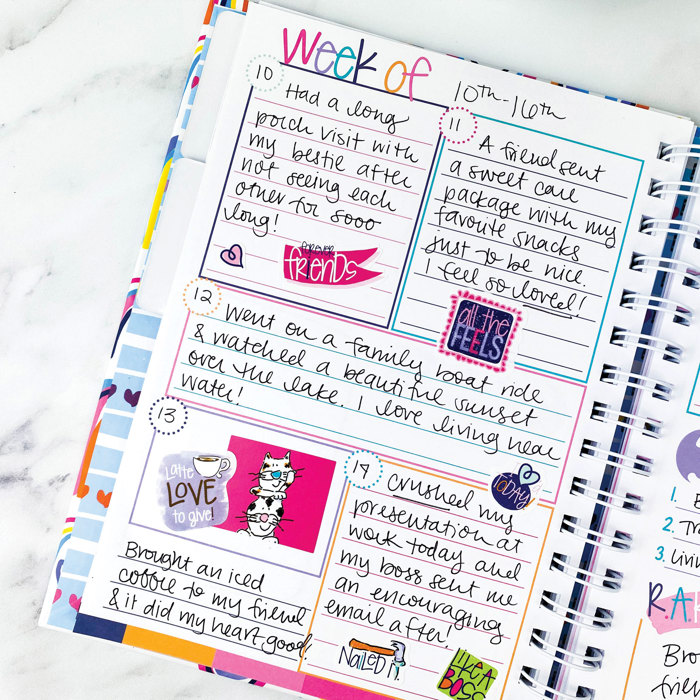 Week of 10th-16th
10
Had a long
porch visit with
my bestie after
not seeing each
other for sooo
long!
FOREVER
friENDS
11
A friend sent
a sweet care
package with my
favorite snacks
just to be nice.
I feel so loved!
all the
FEELS
12
Went on a family boat ride
& watched a beautiful sunset
over the lake. I love living near
water!
TODAY
13
Latte
LOVE
to give!
Brought an iced
coffee to my friend
& it did my heart good.
14
Crushed my
presentation at
work today and
my boss sent me
an encouraging
email after!
NAILED IT.
LIKE A
BOSS
1.
2. Tr
3. Livin
R.A.
Bro
frien